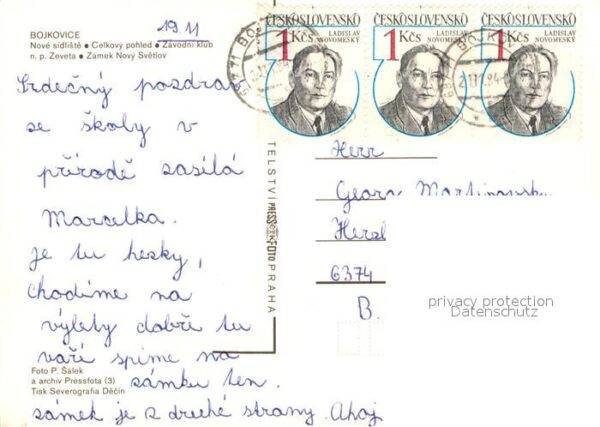 19.11
BOJKOVICE
Nové sídliště • Celkový pohled • Závodní klub
n. p. Zeveta • Zámek Nový Světlov
ČESKOSLOVENSKO
1 Kčs
LADISLAV
NOVOMESKÝ
ČESKOSLOVENSKO
1 Kčs
LADISLAV
NOVOMESKÝ
ČESKOSLOVENSKO
1 Kčs
LADISLAV
NOVOMESKÝ
Srdečný pozdrav
se školy v
přírodě zasílá
Marcelka.
je tu hesky,
chodíme na
výlety dobří tu
vaří spíme na
zámku ten.
zámek je z druhé strany. Ahoj
Foto P. Šálek
a archiv Pressfota (3)
Tisk Severografia Děčín
TELSTVÍ PRESSFOTO PRAHA
Herr
Georg
6374
B.
privacy protection
Datenschutz